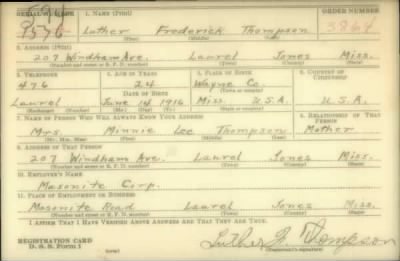 SERIAL NUMBER 1. NAME (Print) ORDER NUMBER
Luther Frederick Thompson 3864
(First) (Middle) (Last)
2. ADDRESS (Print)
207 Windham Ave. Laurel Jones Miss.
(Number and street or R. F. D. number) (Town) (County) (State)
3. TELEPHONE 4. AGE IN YEARS 5. PLACE OF BIRTH 6. COUNTRY OF CITIZENSHIP
476 24 Wayne Co.
DATE OF BIRTH (Town or county)
Laurel June 14 1916 Miss. U.S.A. U.S.A.
(Exchange) (Number) (Mo.) (Day) (Yr.) (State or country)
7. NAME OF PERSON WHO WILL ALWAYS KNOW YOUR ADDRESS 8. RELATIONSHIP OF THAT PERSON
Mrs. Minnie Lee Thompson Mother
(Mr., Mrs., Miss) (First) (Middle) (Last)
9. ADDRESS OF THAT PERSON
207 Windham Ave. Laurel Jones Miss.
(Number and street or R. F. D. number) (Town) (County) (State)
10. EMPLOYER'S NAME
Masonite Corp.
11. PLACE OF EMPLOYMENT OR BUSINESS
Masonite Road Laurel Jones Miss.
(Number and street or R. F. D. number) (Town) (County) (State)
I AFFIRM THAT I HAVE VERIFIED ABOVE ANSWERS AND THAT THEY ARE TRUE.
REGISTRATION CARD
D. S. S. Form 1 (over) Luther F. Thompson
(Registrant's signature)